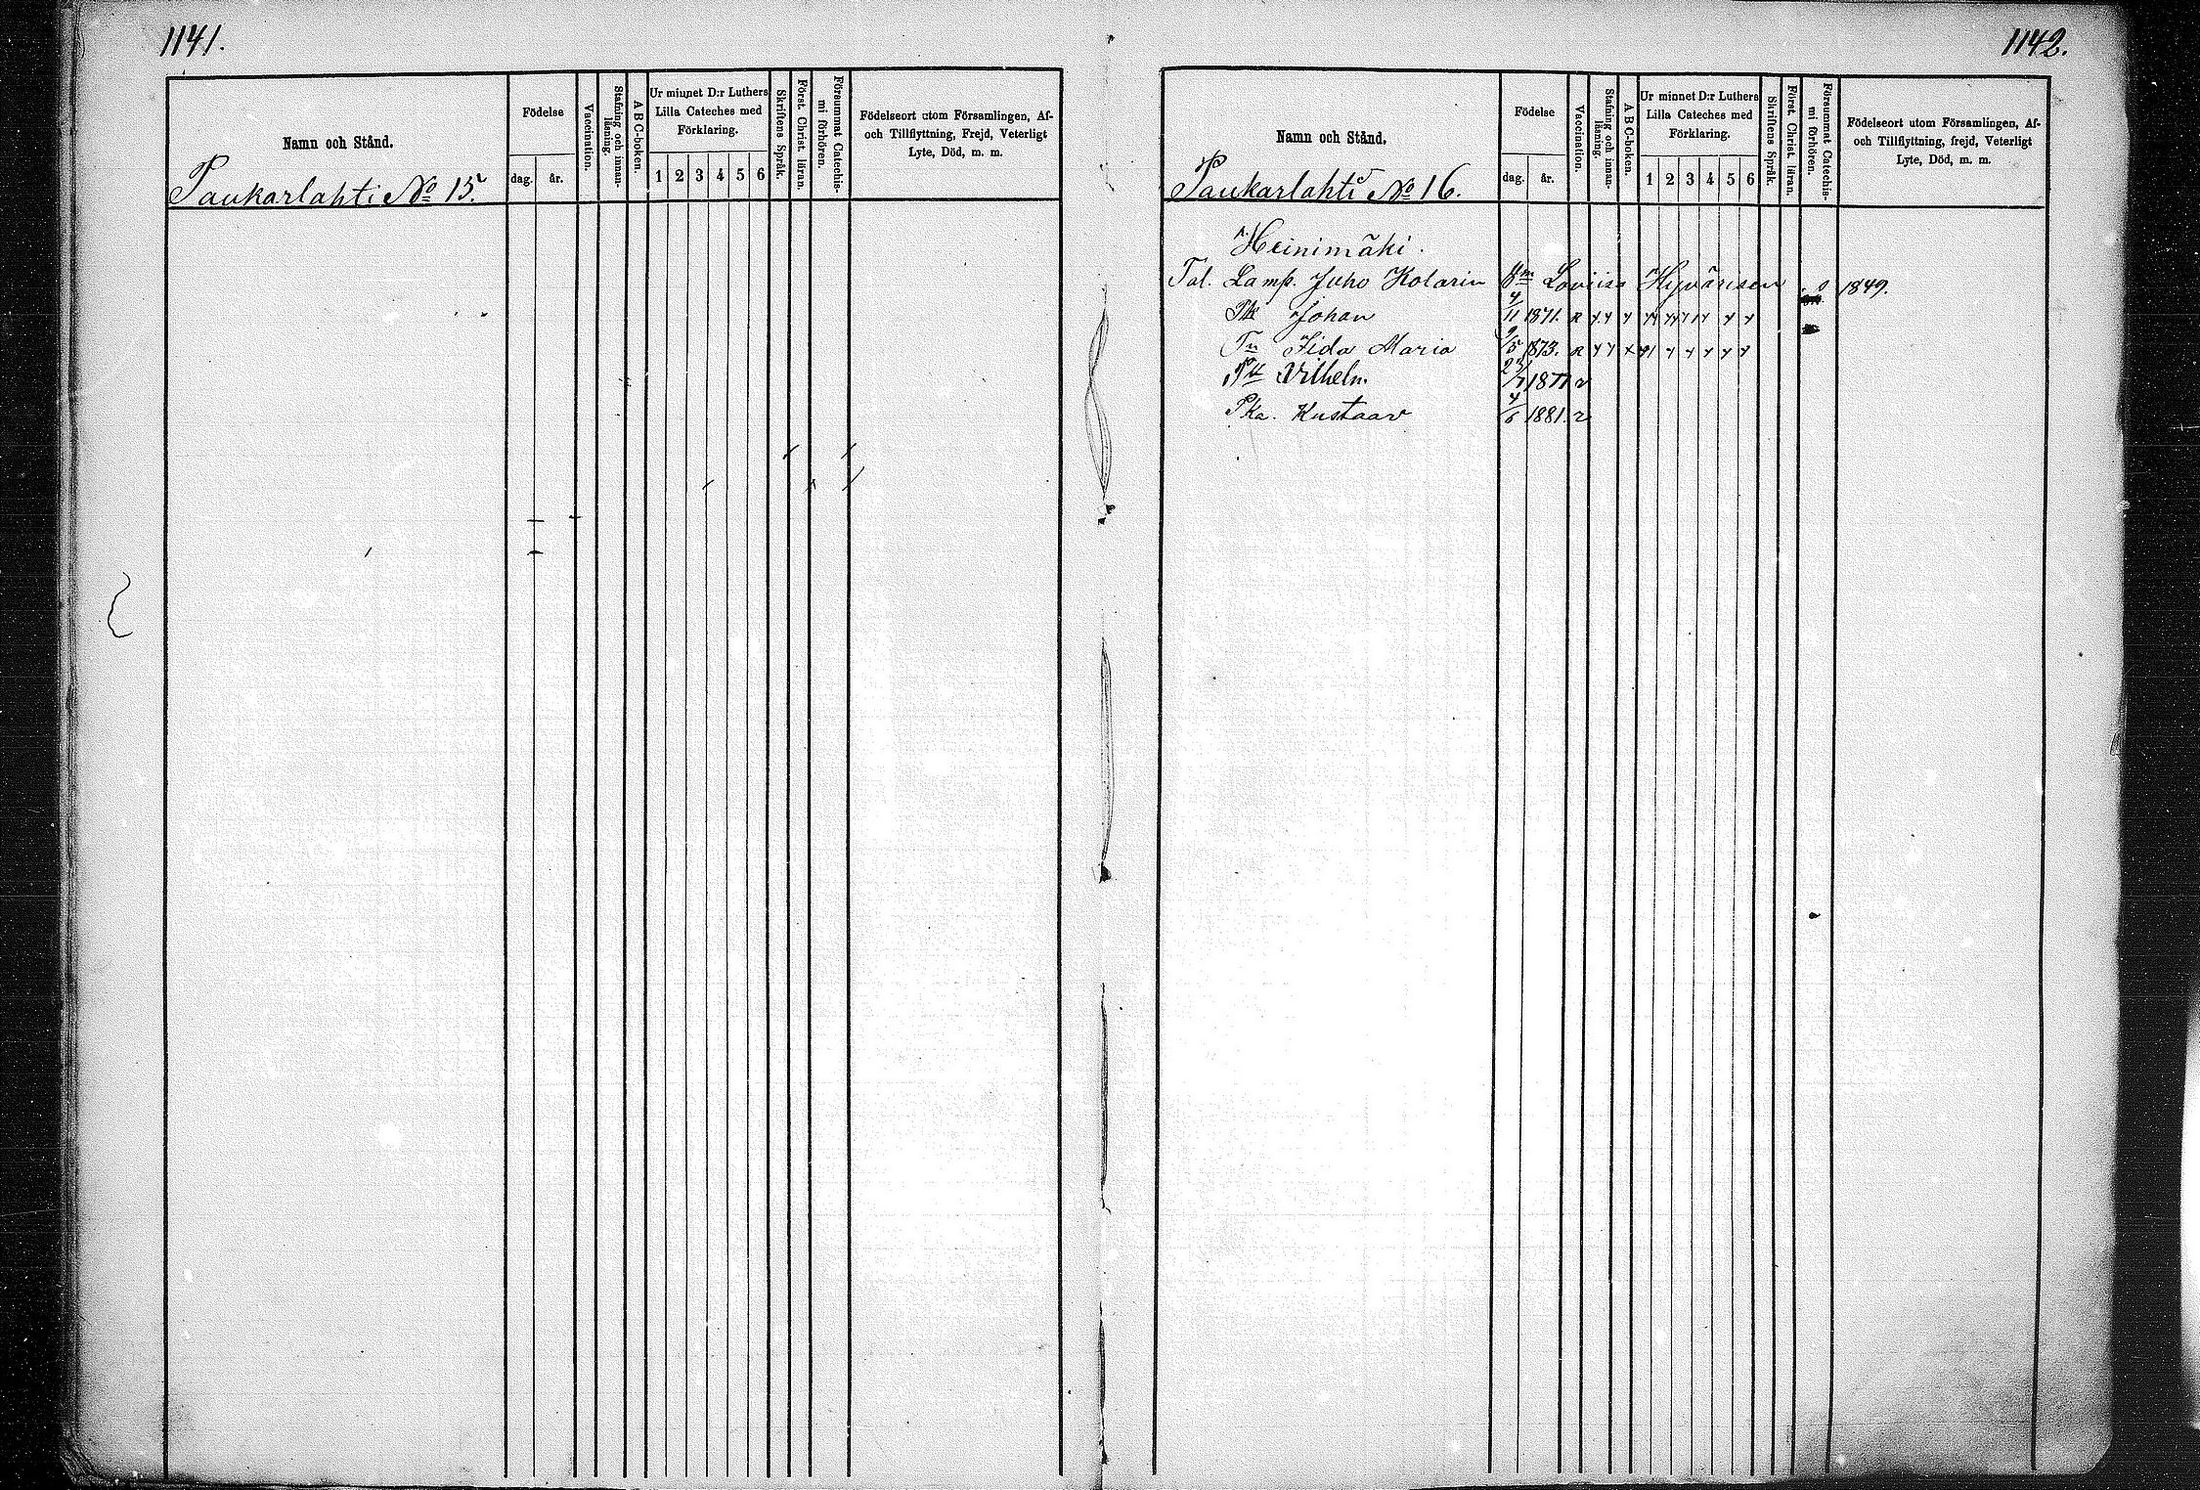 1141.
Namn och Stånd.
Födelse
dag.
år.
Vaccination.
Stafning och innan-
läsning.
ABC-boken.
Ur minnet D:r Luthers
Lilla Cateches med
Förklaring.
1 2 3 4 5 6
Skriftens Språk.
Först. Christ. läran.
Försummat Catechis-
mi förhören.
Födelseort utom Församlingen, Af-
och Tillflyttning, Frejd, Veterligt
Lyte, Död, m. m.
Paukarlahti No 15.
1142.
Namn och Stånd.
Födelse
dag.
år.
Vaccination.
Stafning och innan-
läsning.
ABC-boken.
Ur minnet D:r Luthers
Lilla Cateches med
Förklaring.
1 2 3 4 5 6
Skriftens Språk.
Först. Christ. läran.
Försummat Catechis-
mi förhören.
Födelseort utom Församlingen, Af-
och Tillflyttning, frejd, Veterligt
Lyte, Död, m. m.
Paukarlahti No 16.
Heinimäki.
Tal. Lamp. Juho Kolarin Loviisa Hyvärisen 1849.
Johan 4/11 1871.
Tr Iida Maria 9/5 1873.
Vilhelm 1877
Pka. Kustaav 4/6 1881.